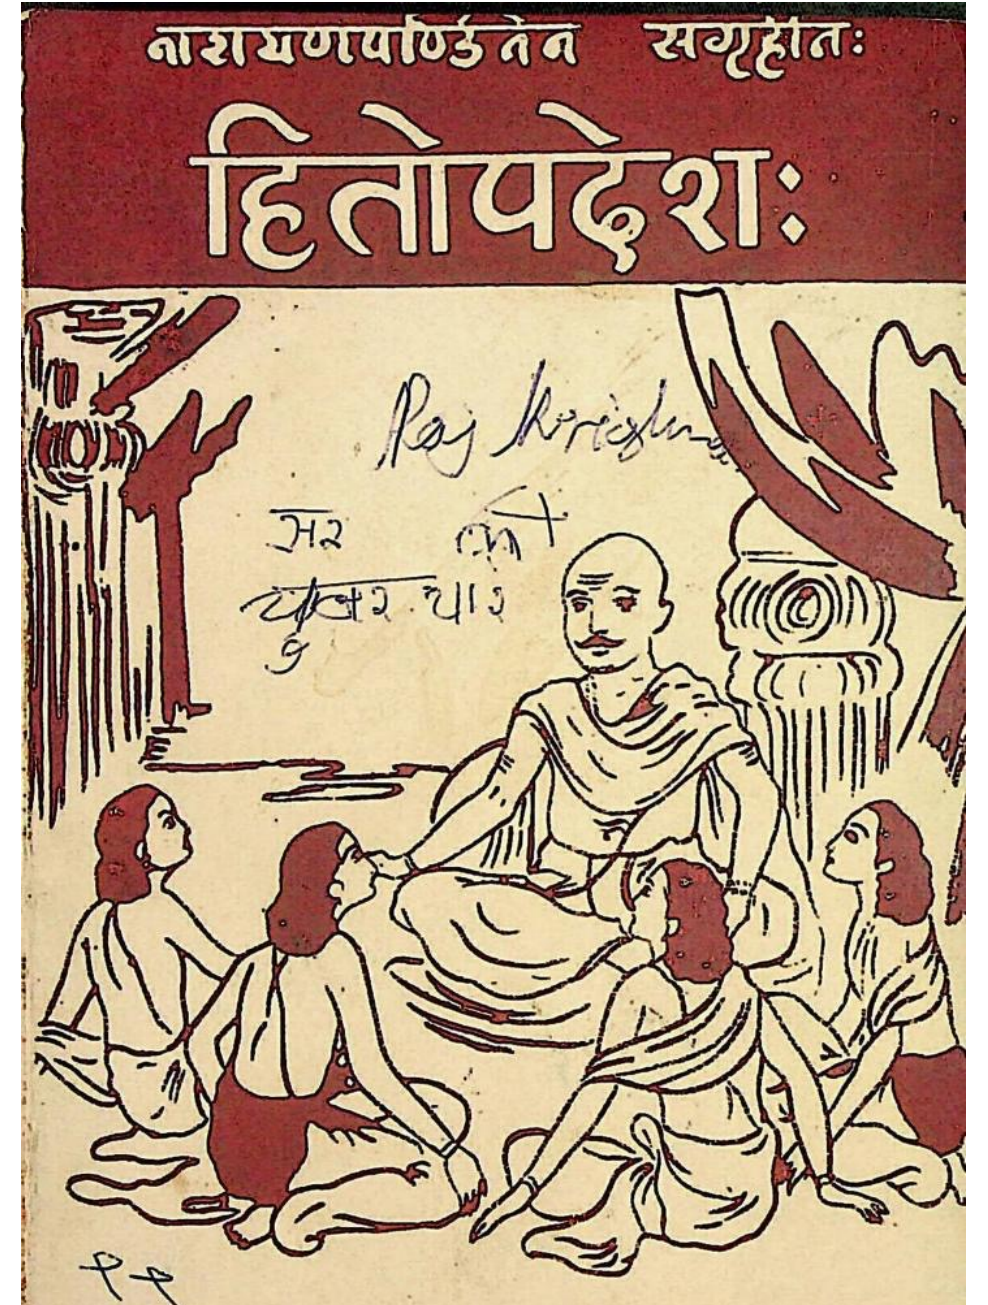 नारायणपण्डितेन सगृहीतः
हितोपदेशः
Raj Krishna
सर को
चार
११